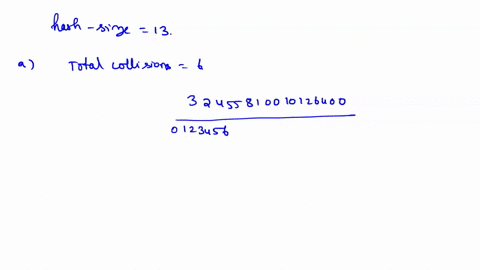 hash-size = 13.
a) Total collisions = 6
3 2 4 5 5 8 1 0 0 1 0 1 2 6 4 0 0
0 1 2 3 4 5 6